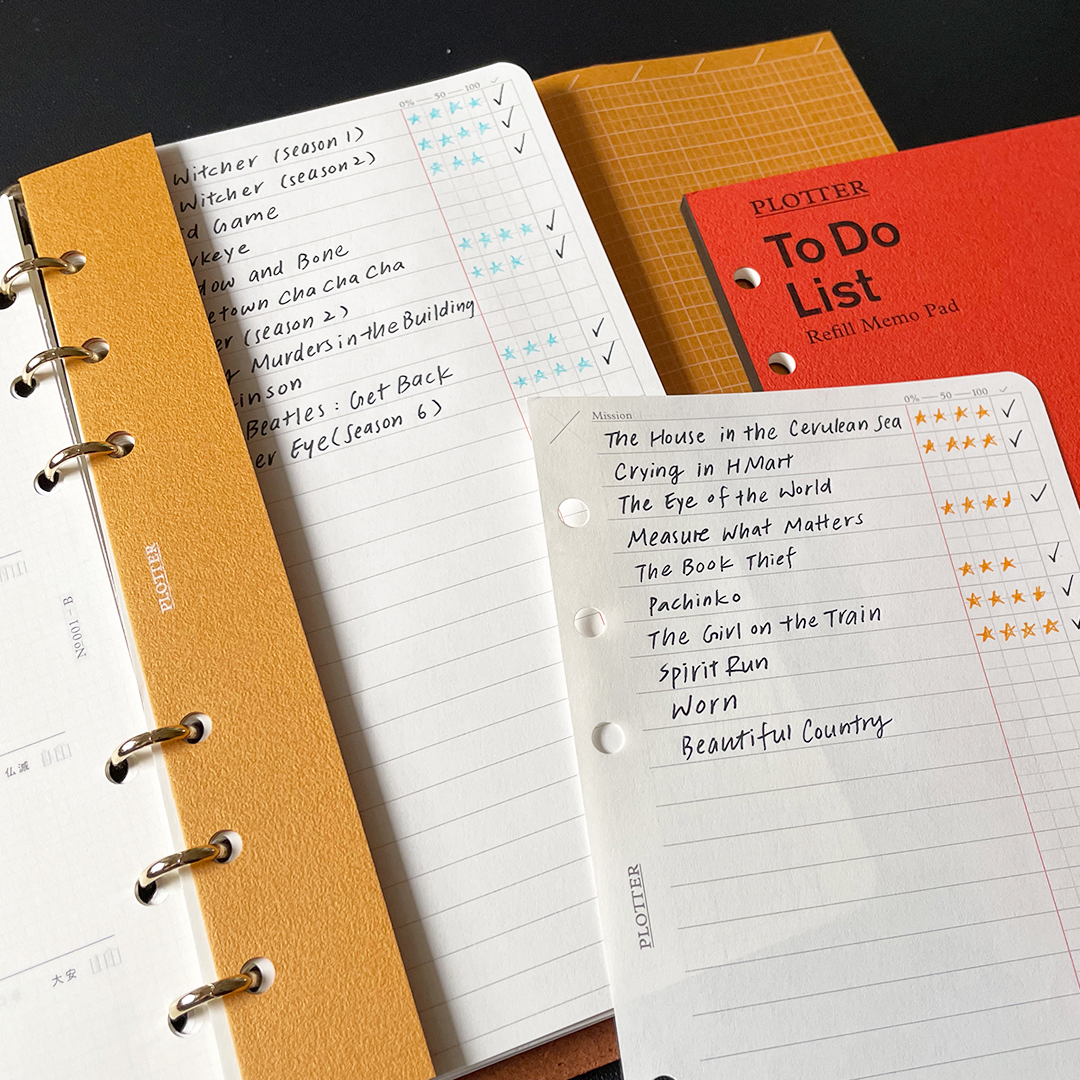 0% — 50 — 100 ✓
Witcher (season 1)
Witcher (season 2)
d Game
keye
dow and Bone
etown Cha Cha Cha
er (season 2)
Murders in the Building
inson
Beatles: Get Back
er Eye (Season 6)
PLOTTER
No001-B
仏滅
大安
PLOTTER
To Do
List
Refill Memo Pad
Mission 0% — 50 — 100 ✓
The House in the Cerulean Sea
Crying in H Mart
The Eye of the World
Measure What Matters
The Book Thief
Pachinko
The Girl on the Train
Spirit Run
Worn
Beautiful Country
PLOTTER